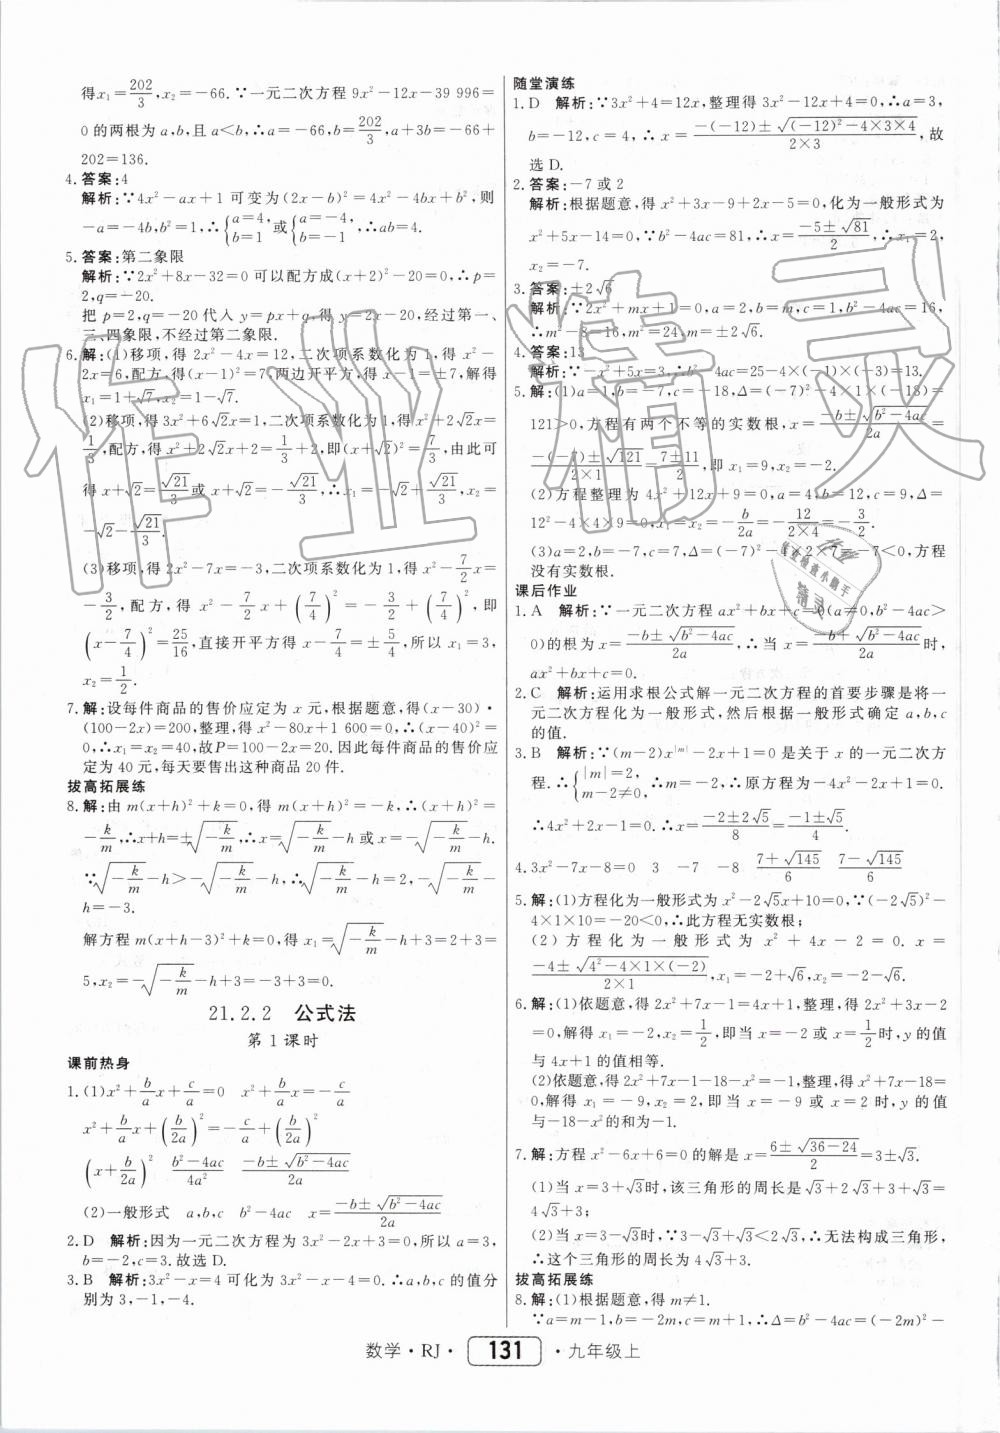 得x₁=202/3,x₂=-66.∵一元二次方程 9x²-12x-39 996=
0的两根为a,b,且a<b,∴a=-66,b=202/3,a+3b=-66+
202=136.
4.答案:4
解析:∵4x²-ax+1可变为(2x-b)²=4x²-4bx+b²,则
-a=-4b,b²=1,∴{a=4,b=1 或{a=-4,b=-1,∴ab=4.
5.答案:第二象限
解析:∵2x²+8x-32=0可以配方成(x+2)²=20,∴p=
2,q=-20.
把p=2,q=-20代入y=px+q,得y=2x-20,经过第一、
三、四象限,不经过第二象限.
6.解:(1)移项,得2x²-4x=12,二次项系数化为1,得x²-
2x=6,配方,得(x-1)²=7,两边开平方,得x-1=±√7,解得
x₁=1+√7,x₂=1-√7.
(2)移项,得3x²+6√2x=1,二次项系数化为1,得x²+2√2x=
1/3,配方,得x²+2√2x+2=1/3+2,即(x+√2)²=7/3,由此可
得x+√2=√21/3或x+√2=-√21/3,∴x₁=-√2+√21/3,x₂=
-√2-√21/3.
(3)移项,得2x²-7x=-3,二次项系数化为1,得x²-7/2x=
-3/2,配方,得x²-7/2x+(7/4)²=-3/2+(7/4)²,即
(x-7/4)²=25/16,直接开平方得x-7/4=±5/4,所以x₁=3,
x₂=1/2.
7.解:设每件商品的售价应定为x元,根据题意,得(x-30)·
(100-2x)=200,整理,得x²-80x+1 600=0,∴(x-40)²=
0,∴x₁=x₂=40,故P=100-2x=20.因此每件商品的售价应
定为40元,每天要售出这种商品20件.
拔高拓展练
8.解:由m(x+h)²+k=0,得m(x+h)²=-k,∴(x+h)²=
-k/m,∴x+h=±√(-k/m),∴x=√(-k/m)-h或x=-√(-k/m)-h.
∵√(-k/m)-h>-√(-k/m)-h,∴√(-k/m)-h=2,-√(-k/m)-
h=-3.
解方程m(x+h-3)²+k=0,得x₁=√(-k/m)-h+3=2+3=
5,x₂=-√(-k/m)-h+3=-3+3=0.
21.2.2 公式法
第1课时
课前热身
1.(1)x²+b/a x+c/a=0 x²+b/a x=-c/a
x²+b/a x+(b/2a)²=-c/a+(b/2a)²
(x+b/2a)² (b²-4ac)/4a² (-b±√(b²-4ac))/2a
(2)一般形式 a,b,c b²-4ac x=(-b±√(b²-4ac))/2a
2.D 解析:因为一元二次方程3x²-2x+3=0,所以a=3,
b=-2,c=3.故选D.
3.B 解析:3x²-x=4可化为3x²-x-4=0.∴a,b,c的值分
别为3,-1,-4.
随堂演练
1.D 解析:∵3x²+4=12x,整理得3x²-12x+4=0,∴a=3,
b=-12,c=4,∴x=(-(-12)±√((-12)²-4×3×4))/(2×3),故
选D.
2.答案:-7或2
解析:根据题意,得x²+3x-9+2x-5=0,化为一般形式为
x²+5x-14=0,∵b²-4ac=81,∴x=(-5±√81)/2,∴x₁=2,
x₂=-7.
3.答案:±2√6
解析:∵2x²+mx+1=0,a=2,b=m,c=1,b²-4ac=16,
∴m²-8=16,m²=24,m=±2√6.
4.答案:13
解析:∵-x²+5x=3,∴b²-4ac=25-4×(-1)×(-3)=13.
5.解:(1)a=1,b=-7,c=-18,Δ=(-7)²-4×1×(-18)=
121>0,方程有两个不等的实数根,x=(-b±√(b²-4ac))/2a=
(-(-7)±√121)/(2×1)=(7±11)/2,即x₁=9,x₂=-2.
(2)方程整理为4x²+12x+9=0,a=4,b=12,c=9,Δ=
12²-4×4×9=0,x₁=x₂=-b/2a=-12/(2×4)=-3/2.
(3)a=2,b=-7,c=7,Δ=(-7)²-4×2×7=-7<0,方程
没有实数根.
课后作业
1.A 解析:∵一元二次方程ax²+bx+c=0(a≠0,b²-4ac>
0)的根为x=(-b±√(b²-4ac))/2a,∴当x=(-b+√(b²-4ac))/2a时,
ax²+bx+c=0.
2.C 解析:运用求根公式解一元二次方程的首要步骤是将一
元二次方程化为一般形式,然后根据一般形式确定a,b,c
的值.
3.B 解析:∵(m-2)x^|m|-2x+1=0是关于x的一元二次方
程.∴{|m|=2,m-2≠0,∴m=-2,∴原方程为-4x²-2x+1=0,
∴4x²+2x-1=0.∴x=(-2±2√5)/8=(-1±√5)/4.
4.3x²-7x-8=0 3 -7 -8 (7+√145)/6 (7-√145)/6
5.解:(1)方程化为一般形式为x²-2√5x+10=0,∵(-2√5)²-
4×1×10=-20<0,∴此方程无实数根;
(2)方程化为一般形式为x²+4x-2=0. x=
(-4±√(4²-4×1×(-2)))/(2×1),x₁=-2+√6,x₂=-2-√6.
6.解:(1)依题意,得2x²+7x-1=4x+1,整理,得2x²+3x-2
=0,解得x₁=-2,x₂=1/2,即当x=-2或x=1/2时,y的值
与4x+1的值相等.
(2)依题意,得2x²+7x-1-18-x²=-1,整理,得x²+7x-18=
0,解得x₁=-9,x₂=2,即当x=-9或x=2时,y的值
与-18-x²的和为-1.
7.解:方程x²-6x+6=0的解是x=(6±√(36-24))/2=3±√3.
(1)当x=3+√3时,该三角形的周长是√3+2√3+3+√3=
4√3+3;
(2)当x=3-√3时,∵√3+3-√3<2√3,∴无法构成三角形,
∴这个三角形的周长为4√3+3.
拔高拓展练
8.解:(1)根据题意,得m≠1.
∵a=m-1,b=-2m,c=m+1,∴Δ=b²-4ac=(-2m)²-
数学·RJ· 131 ·九年级上
作业精灵
作业
检查小助手
精灵